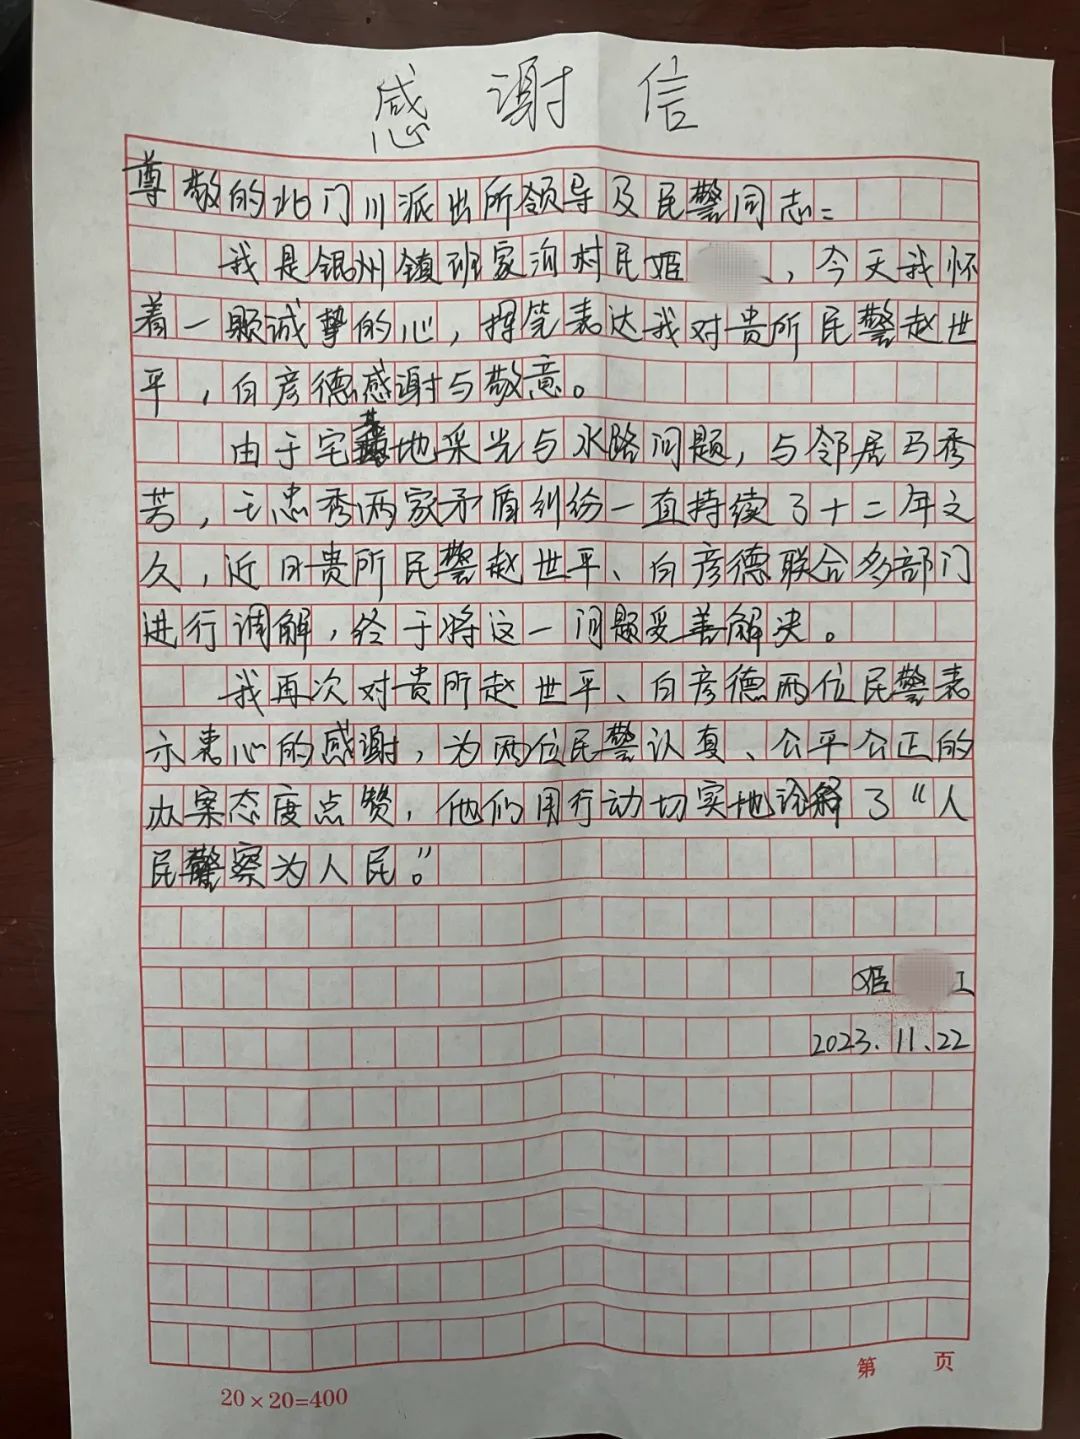 感谢信
尊敬的北门川派出所领导及民警同志:
我是银州镇班家沟村民姬、,今天我怀
着一颗诚挚的心,挥笔表达我对贵所民警赵世
平,白彦德感谢与敬意。
由于宅基地采光与水路问题,与邻居马秀
芳,王忠秀两家矛盾纠纷一直持续了十二年之
久,近日贵所民警赵世平、白彦德联合多部门
进行调解,终于将这一问题妥善解决。
我再次对贵所赵世平、白彦德两位民警表
示衷心的感谢,为两位民警认真、公平公正的
办案态度点赞,他们用行动切实地诠释了“人
民警察为人民。”
姬
2023.11.22
第 页
20×20=400